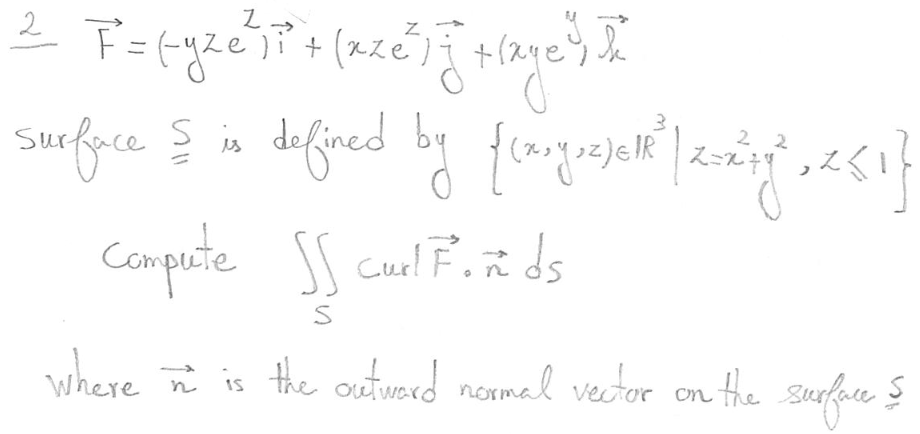 2 F⃗ = (-yze^z) i⃗ + (xze^z) j⃗ + (xye^y) k⃗
surface S is defined by {(x,y,z)∈ℝ³ | z=x²+y², z⩽1}
Compute ∬_S curl F⃗ . n⃗ ds
where n⃗ is the outward normal vector on the surface S